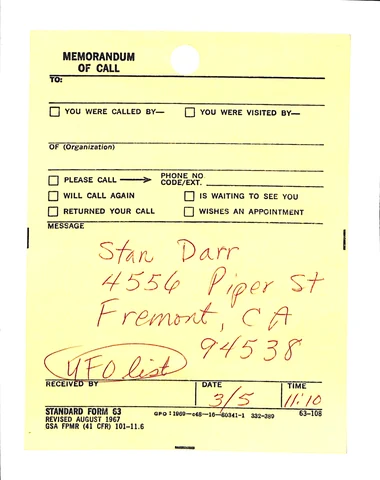 MEMORANDUM
OF CALL
TO:
YOU WERE CALLED BY— YOU WERE VISITED BY—
OF (Organization)
PLEASE CALL → PHONE NO. CODE/EXT.
WILL CALL AGAIN IS WAITING TO SEE YOU
RETURNED YOUR CALL WISHES AN APPOINTMENT
MESSAGE
Stan Darr
4556 Piper St
Fremont, CA
94538
UFO list
RECEIVED BY DATE TIME
3/5 11:10
STANDARD FORM 63 GPO : 1969—c48—16—80341-1 332-389 63-108
REVISED AUGUST 1967
GSA FPMR (41 CFR) 101-11.6